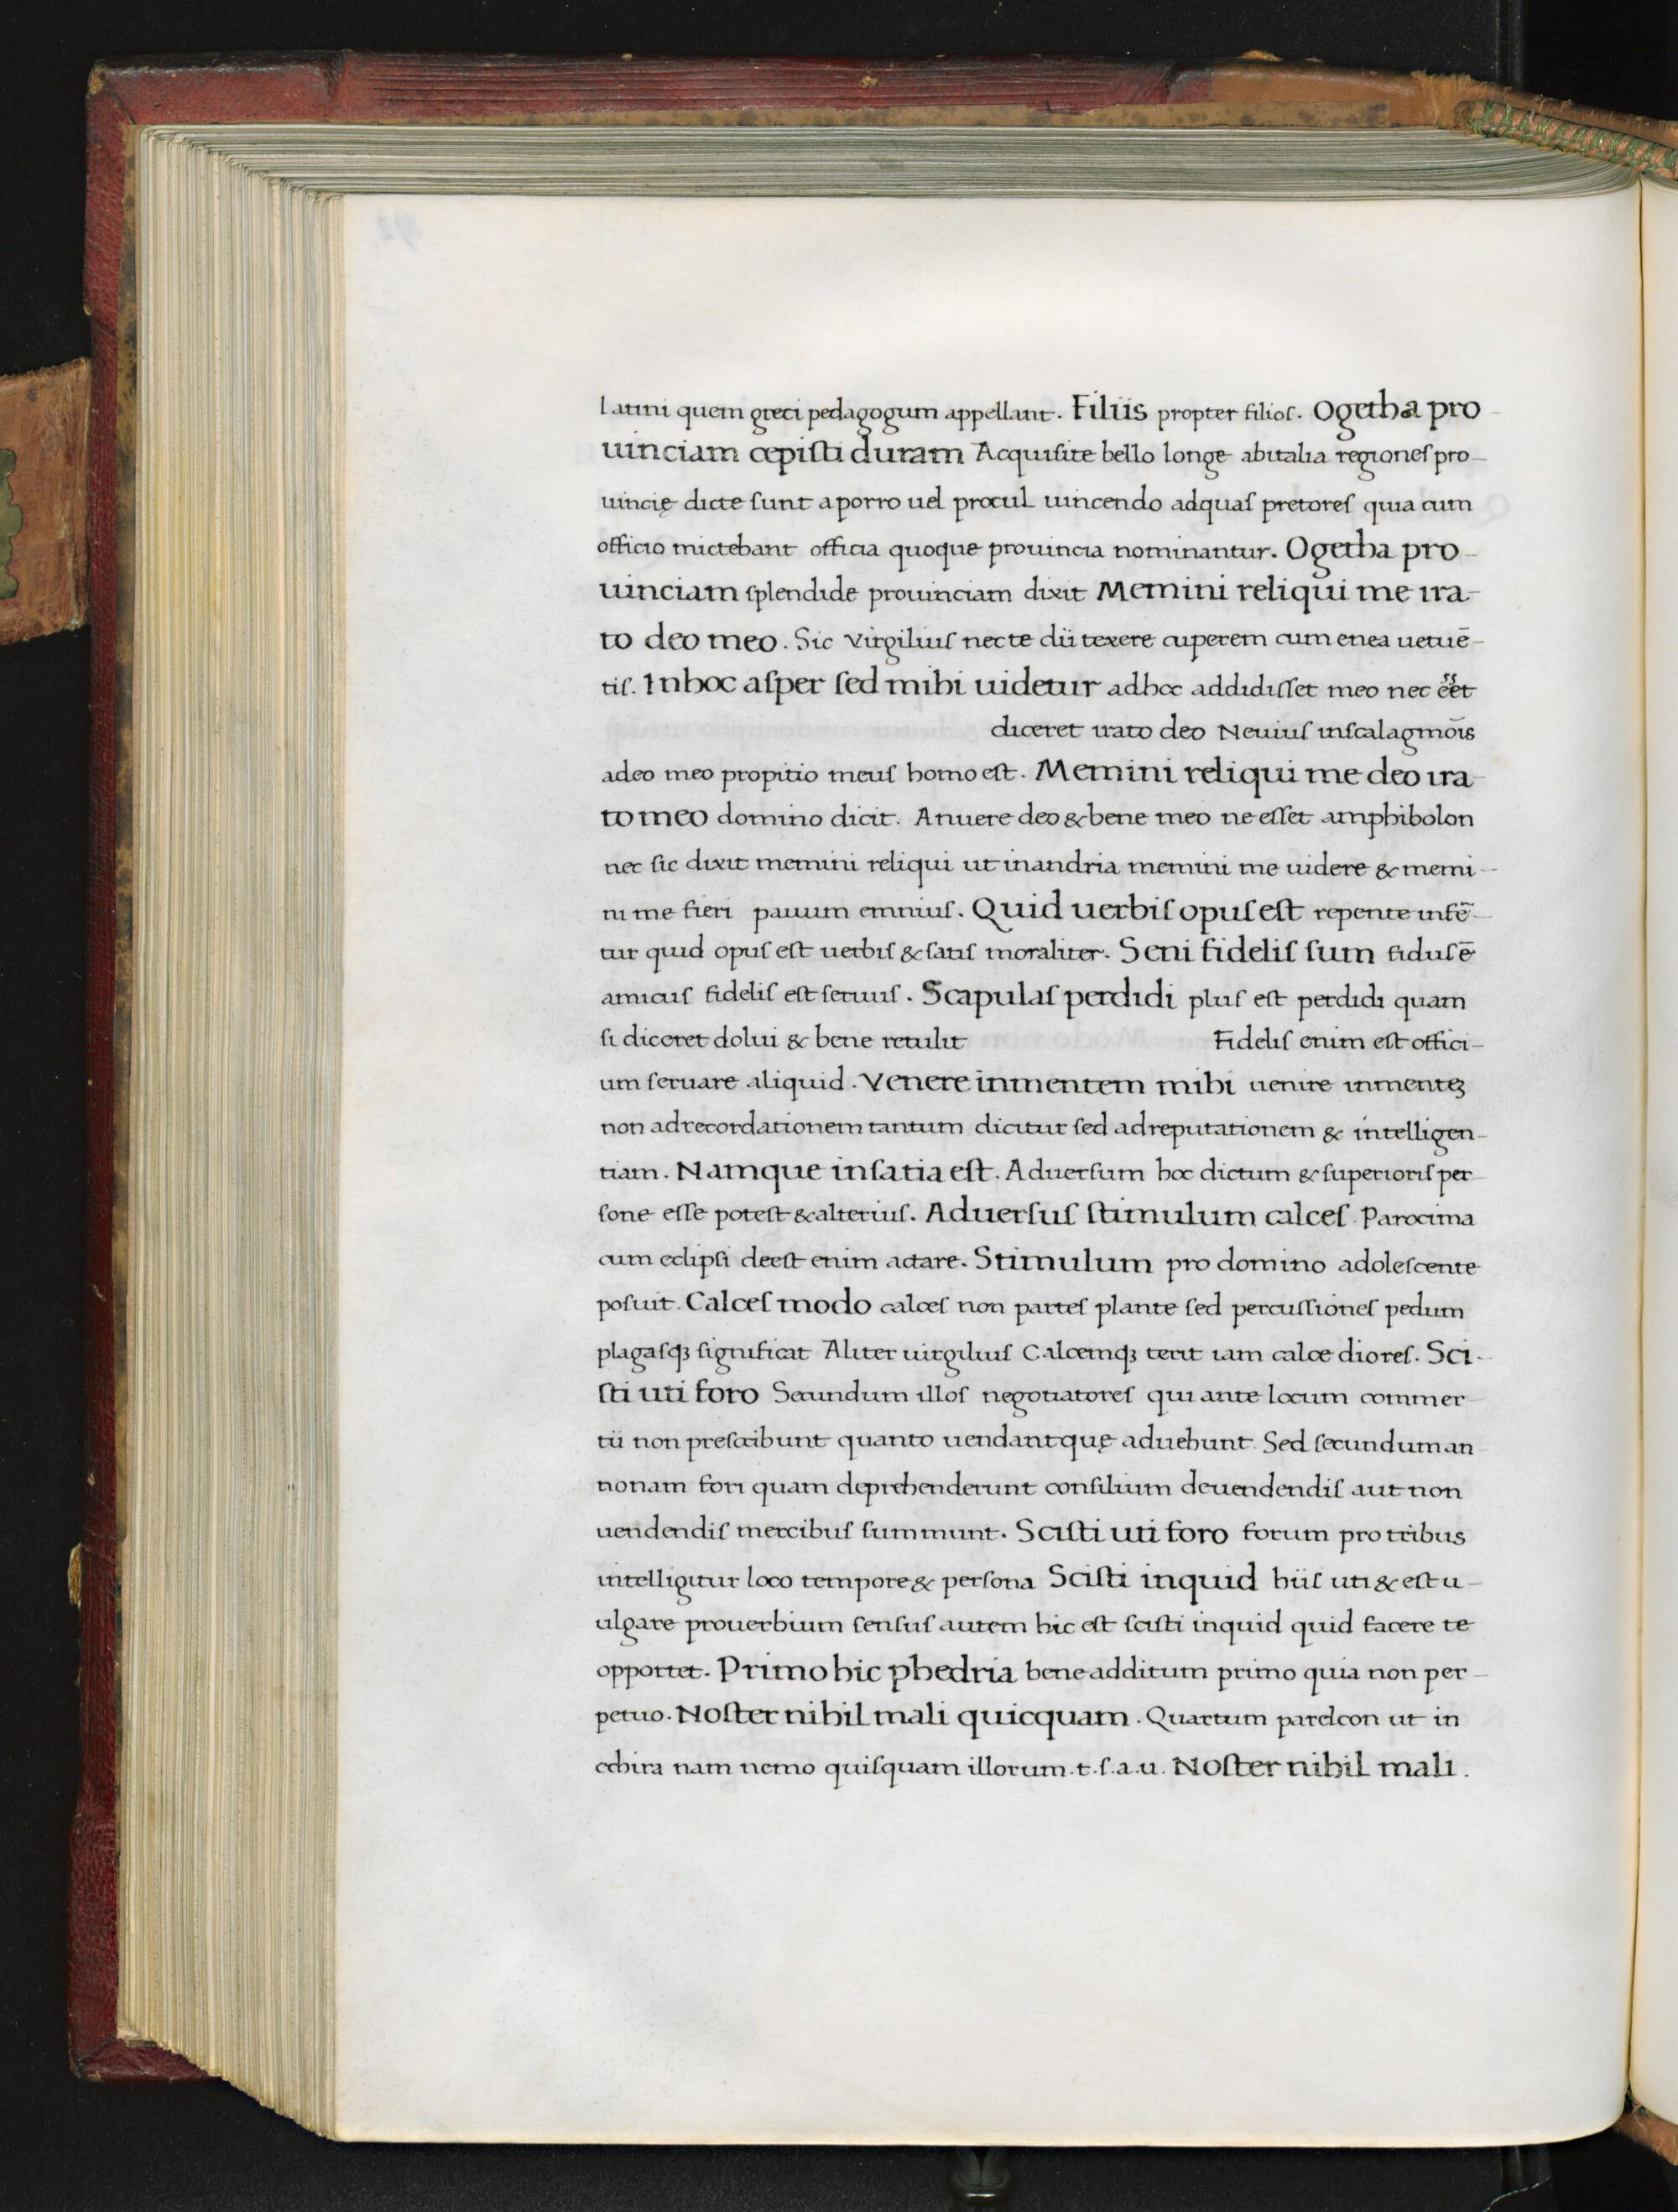 latini quem greci pedagogum appellant. Filiis propter filios. Ogetha pro-
uinciam cepisti duram Acquisite bello longe abitalia regiones pro-
uincię dicte sunt aporro uel procul uincendo adquas pretores quia cum
officio mictebant officia quoque prouincia nominantur. Ogetha pro-
uinciam splendide prouinciam dixit Memini reliqui me ira-
to deo meo. Sic Virgilius necte dii texere cuperem cum enea uetuē-
tis. Inhoc asper sed mihi uidetur adhoc addidisset meo nec eēt
diceret irato deo Neuius inscalagmoīs
adeo meo propitio meus homo est. Memini reliqui me deo ira-
to meo domino dicit. Anuere deo & bene meo ne esset amphibolon
nec sic dixit memini reliqui ut inandria memini me uidere & memi-
ni me fieri pauum emnius. Quid uerbis opus est repente infē-
tur quid opus est uerbis & satis moraliter. Seni fidelis sum fidus ē
amicus fidelis est seruus. Scapulas perdidi plus est perdidi quam
si diceret dolui & bene retulit Fidelis enim est offici-
um seruare aliquid. Venere inmentem mihi uenire inmenteꝫ
non adrecordationem tantum dicitur sed adreputationem & intelligen-
tiam. Namque insatia est. Aduersum hoc dictum & superioris per-
sone esse potest & alterius. Aduersus stimulum calces. Parocima
cum eclipsi deest enim actare. Stimulum pro domino adolescente
posuit. Calces modo calces non partes plante sed percussiones pedum
plagasqꝫ significat Aliter uirgilius Calcemqꝫ terit iam calce diores. Sci-
sti uti foro Secundum illos negotiatores qui ante locum commer-
tii non prescribunt quanto uendant quę aduehunt. Sed secundum an-
nonam fori quam deprehenderunt consilium deuendendis aut non
uendendis mercibus summunt. Scisti uti foro forum pro tribus
intelligitur loco tempore & persona Scisti inquid hiis uti & est u-
ulgare prouerbium sensus autem hic est scisti inquid quid facere te
opportet. Primo hic phedria bene additum primo quia non per-
petuo. Noster nihil mali quicquam. Quartum parelcon ut in
echira nam nemo quisquam illorum.t.s.a.u. Noster nihil mali.